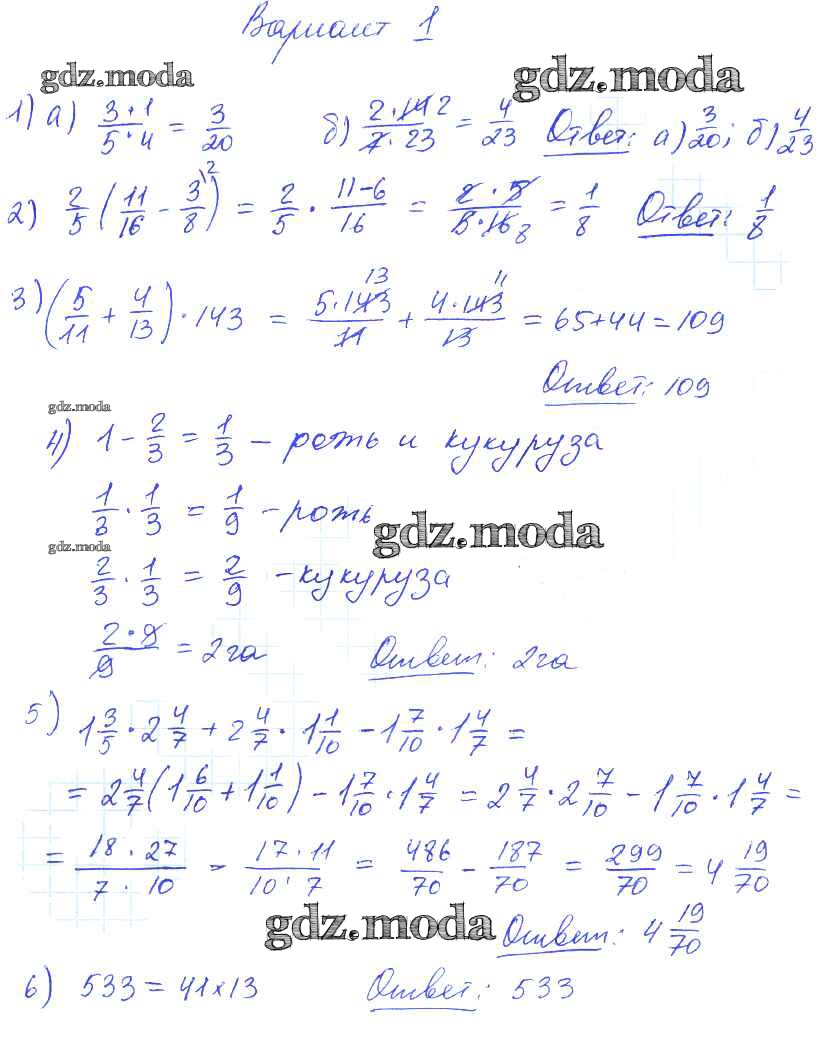 Вариант 1
gdz.moda gdz.moda
1) а) 3·1/5·4 = 3/20 б) 2·14 2/7·23 = 4/23 Ответ: а) 3/20; б) 4/23
2) 2/5 (11/16 − 3/8 \2) = 2/5 · 11−6/16 = 2·5/5·16 8 = 1/8 Ответ: 1/8
3) (5/11 + 4/13) · 143 = 5·143 13/11 + 4·143 11/13 = 65+44 = 109
Ответ: 109
gdz.moda
4) 1 − 2/3 = 1/3 – рожь и кукуруза
1/3 · 1/3 = 1/9 – рожь
gdz.moda
gdz.moda
2/3 · 1/3 = 2/9 – кукуруза
2·9/9 = 2га Ответ: 2га
5) 1 3/5 · 2 4/7 + 2 4/7 · 1 1/10 − 1 7/10 · 1 4/7 =
= 2 4/7 (1 6/10 + 1 1/10) − 1 7/10 · 1 4/7 = 2 4/7 · 2 7/10 − 1 7/10 · 1 4/7 =
= 18·27/7·10 − 17·11/10·7 = 486/70 − 187/70 = 299/70 = 4 19/70
gdz.moda
Ответ: 4 19/70
6) 533 = 41×13 Ответ: 533